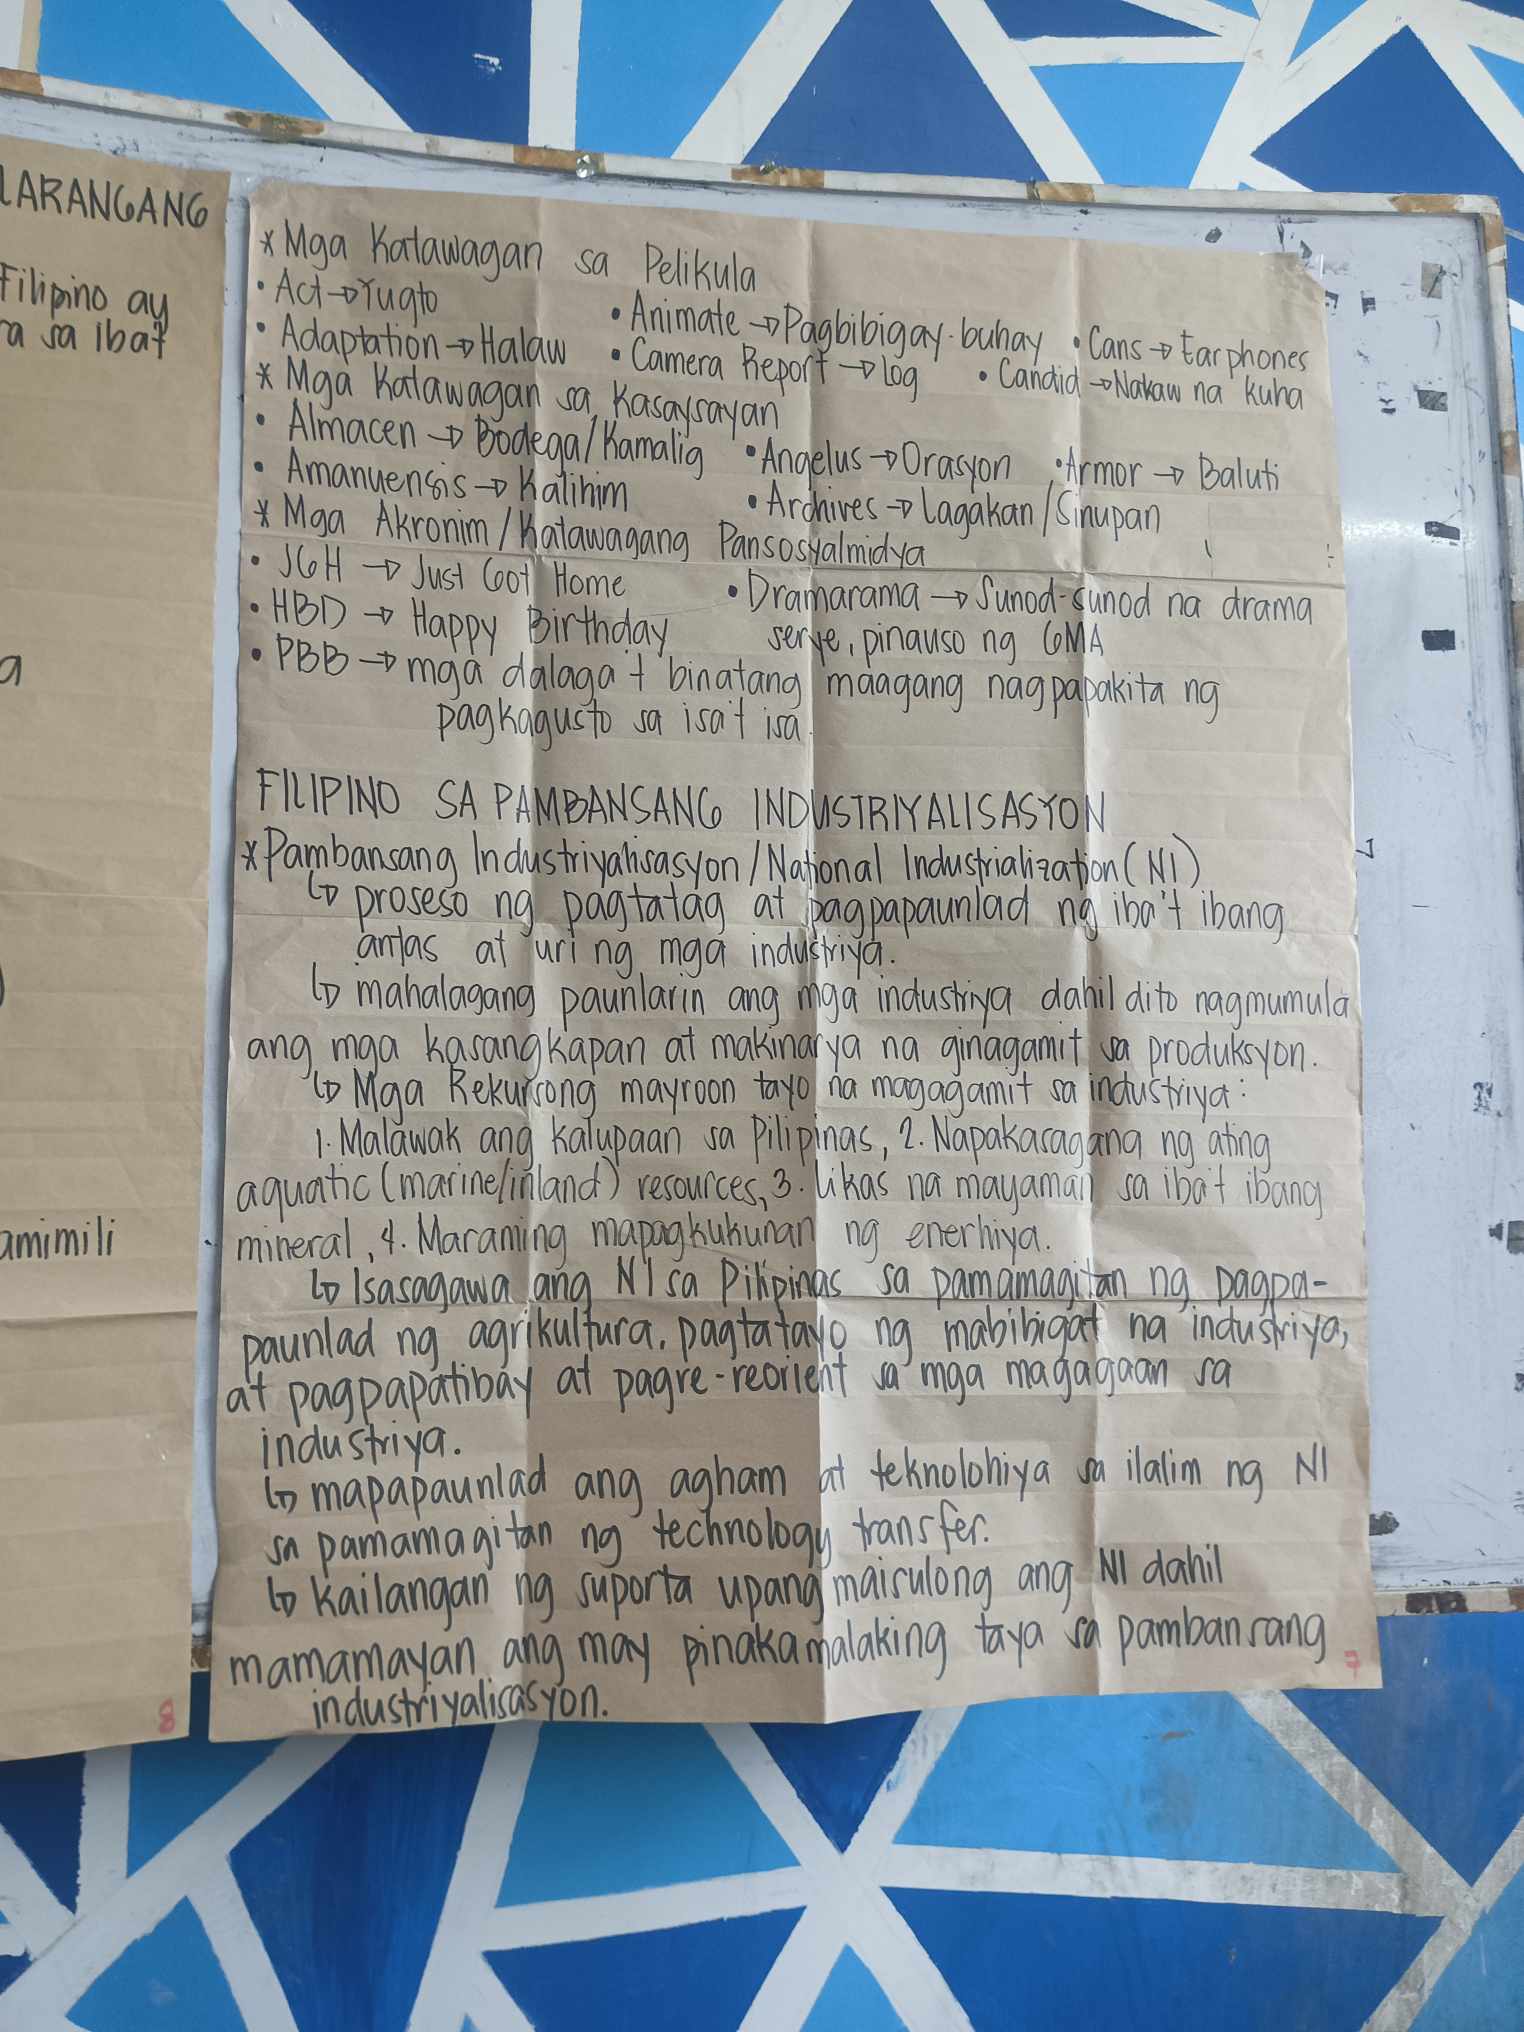 LARANGANG
Filipino ay
ra sa ibat
a
amimili
8
* Mga Katawagan sa Pelikula
• Act → Yugto
• Animate → Pagbibigay-buhay • Cans → Earphones
• Adaptation → Halaw • Camera Report → Log • Candid → Nakaw na kuha
* Mga Katawagan sa Kasaysayan
• Almacen → Bodega/Kamalig • Angelus → Orasyon • Armor → Baluti
• Amanuensis → Kalihim • Archives → Lagakan/Sinupan
* Mga Akronim/Katawagang Pansosyalmidya
• JGH → Just Got Home • Dramarama → Sunod-sunod na drama
• HBD → Happy Birthday serye, pinauso ng GMA
• PBB → mga dalaga't binatang maagang nagpapakita ng
pagkagusto sa isa't isa.
FILIPINO SA PAMBANSANG INDUSTRIYALISASYON
* Pambansang Industriyalisasyon/National Industrialization (NI)
↳ proseso ng pagtatag at pagpapaunlad ng iba't ibang
antas at uri ng mga industriya.
↳ mahalagang paunlarin ang mga industriya dahil dito nagmumula
ang mga kasangkapan at makinarya na ginagamit sa produksyon.
↳ Mga Rekursong mayroon tayo na magagamit sa industriya:
1. Malawak ang kalupaan sa Pilipinas, 2. Napakasagana ng ating
aquatic (marine/inland) resources, 3. likas na mayaman sa iba't ibang
mineral, 4. Maraming mapagkukunan ng enerhiya.
↳ Isasagawa ang NI sa Pilipinas sa pamamagitan ng pagpa-
paunlad ng agrikultura, pagtatayo ng mabibigat na industriya,
at pagpapatibay at pagre-reorient sa mga magagaan sa
industriya.
↳ mapapaunlad ang agham at teknolohiya sa ilalim ng NI
sa pamamagitan ng technology transfer.
↳ kailangan ng suporta upang maisulong ang NI dahil
mamamayan ang may pinakamalaking taya sa pambansang
industriyalisasyon.
7